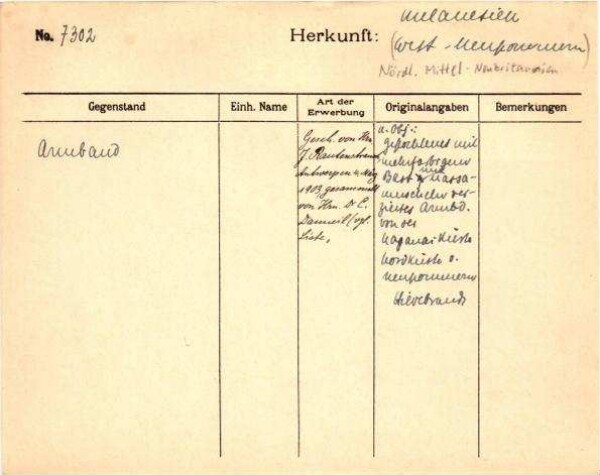 No. 7302
Herkunft: Melanesien
(West-Neupommern)
Nördl. Mittel-Neubritannien
Gegenstand Einh. Name Art der Erwerbung Originalangaben Bemerkungen
Armband
Gesch. von Hrn
J. Rautenstrauch
Antwerpen 4. März
1903 gesammelt
von Hrn. Dr C.
Danneil (vgl.
Liste.
a. Obj:
geflochtenes mit
mehrfarbigem
Bast und Nassa-
muscheln ver-
ziertes Armbd.
von der
Küste
Nordküste v.
Neupommern
Hildebrand